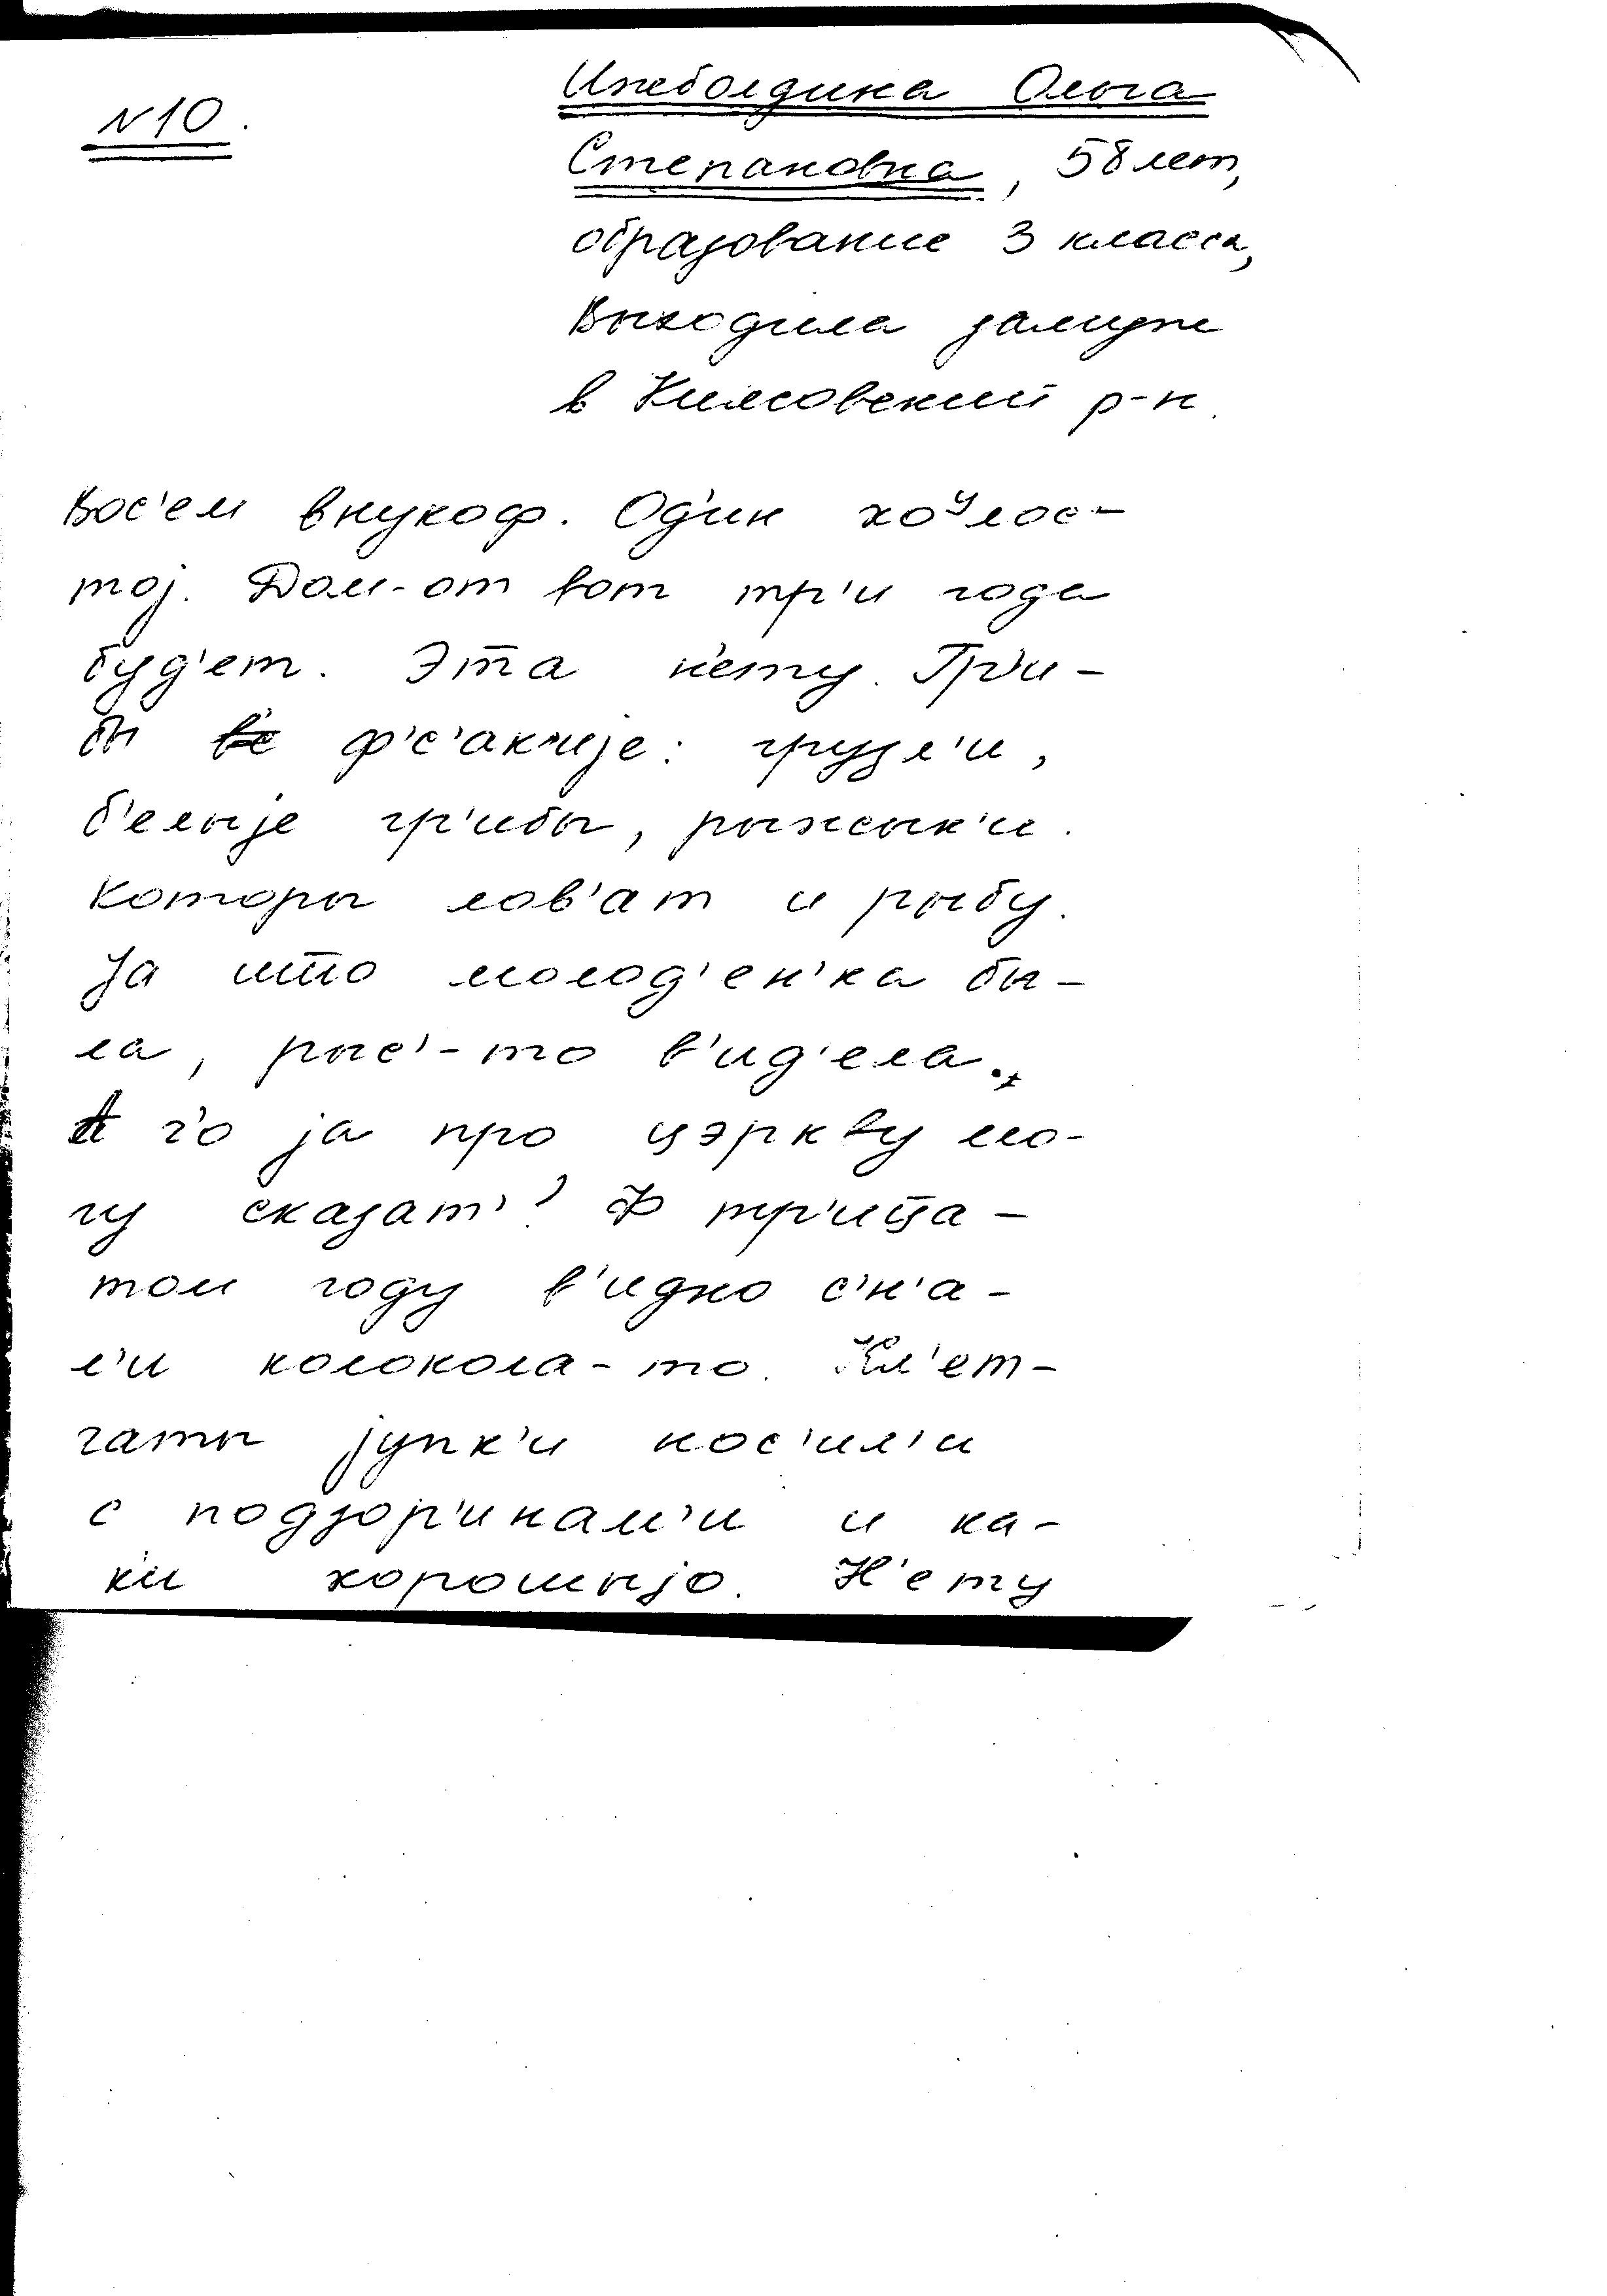 N10.
Ижболдина Ольга
Степановна, 58 лет,
образование 3 класса,
выходила замуж
в Кизнесовский р-н.
Вос'ем внукоф. Од'ин хоулос-
тоj. Дом-от вот тр'и года
буд'ет. Эт̄а н'ету. Гр'и-
бы ф'с'ак'иjе: грузд'и,
б'елыjе гр'ибы, рыжык'и.
Которы лов'ат и рыбу.
Jа шт̄о молод'ен'ка бы-
ла, рыс'-то в'ид'ела.
А ч'о jа про цэркву мо-
гу сказат'? Ф тр'иц̄а-
том году в'идно с'н'а-
л'и колокола-то. Кл'ет-
чаты jупк'и нос'ил'и
с подзор'инам'и и ка-
к'и хорошыjо. Н'ету